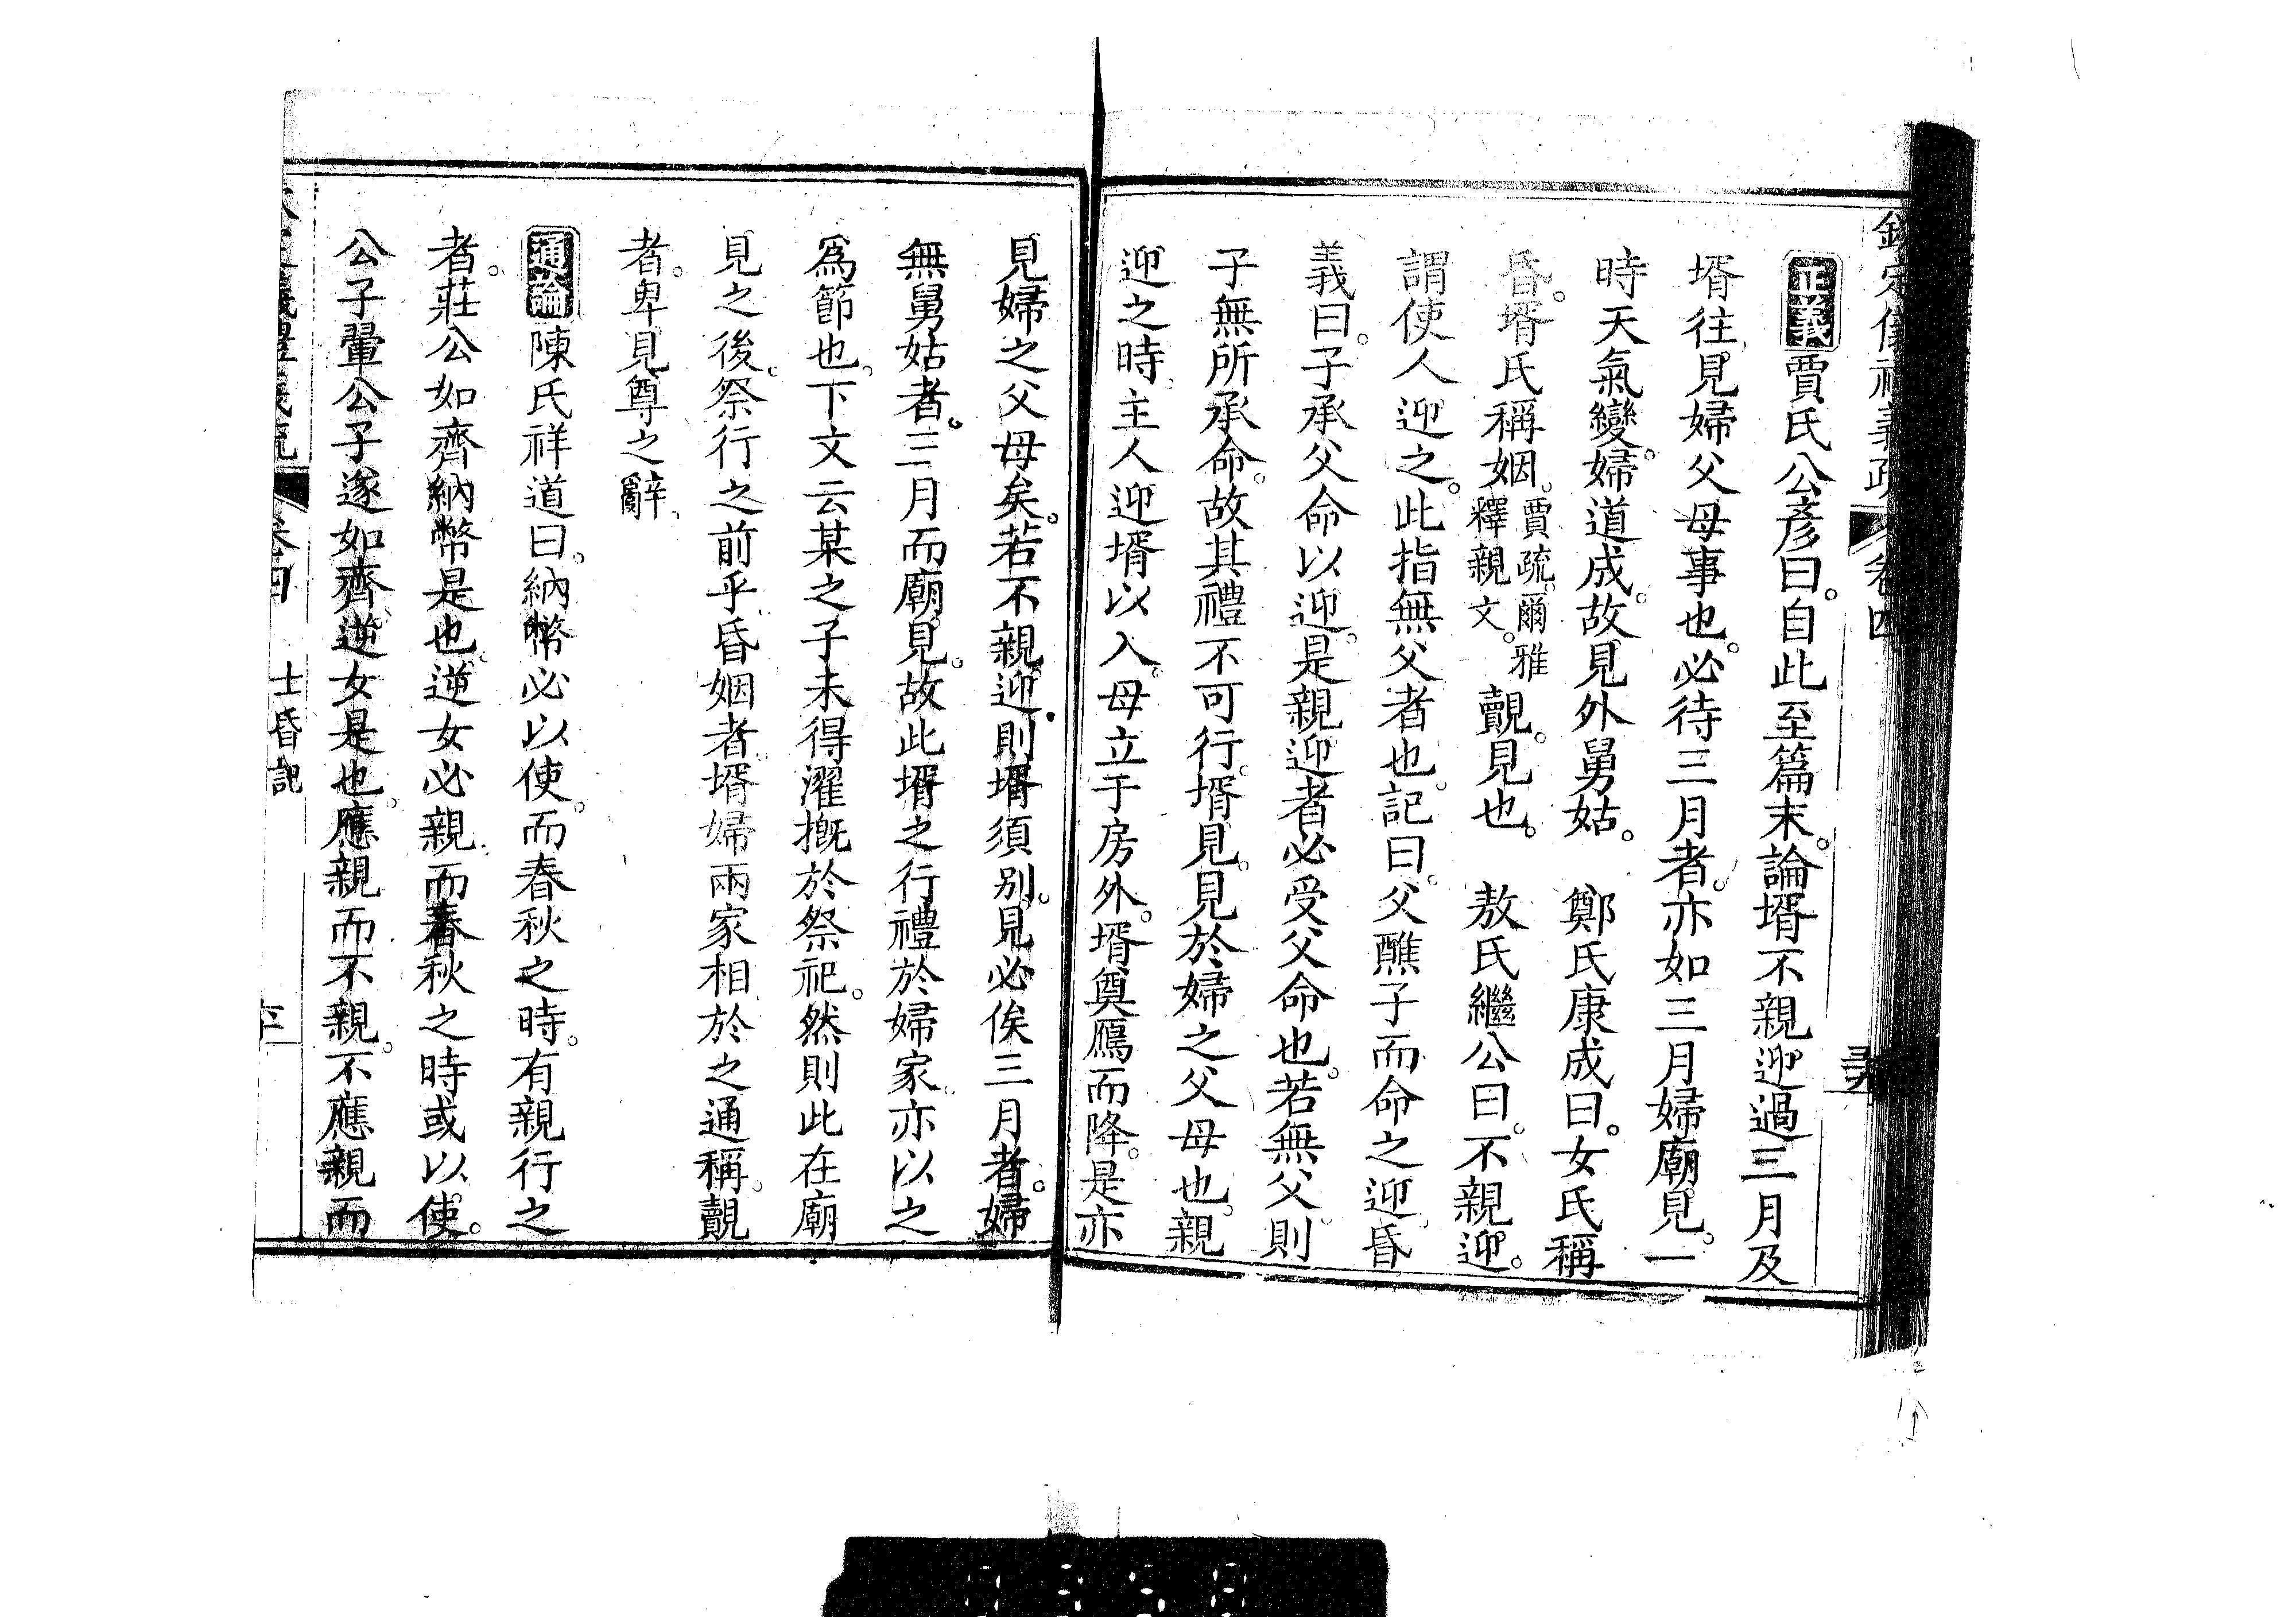 正義賈氏公彥曰。自此至篇末。論壻不親迎過三月及
壻往見婦父母事也。必待三月者。亦如三月婦廟見。一
時天氣變。婦道成。故見外舅姑。　鄭氏康成曰。女氏稱
昏。壻氏稱姻。賈疏。爾雅釋親文。覿。見也。　敖氏繼公曰。不親迎。
謂使人迎之。此指無父者也。記曰。父醮子而命之迎。昏
義曰。子承父命以迎。是親迎者必受父命也。若無父。則
子無所承命。故其禮不可行。壻見。見於婦之父母也。親
迎之時。主人迎壻以入。母立于房外。壻奠鴈而降。是亦
見婦之父母矣。若不親迎。則壻須别。見必俟三月者。婦
無舅姑者。三月而廟見。故此壻之行禮於婦家。亦以之
爲節也。下文云某之子未得濯摡於祭祀。然則此在廟
見之後。祭行之前乎。昏姻者。壻婦兩家相於之通稱。覿
者。卑見尊之辭。
通論陳氏祥道曰。納幣必以使。而春秋之時。有親行之
者。莊公如齊納幣是也。逆女必親。而春秋之時或以使。
公子翬公子遂如齊逆女是也。應親而不親。不應親而
卷四　士昏記